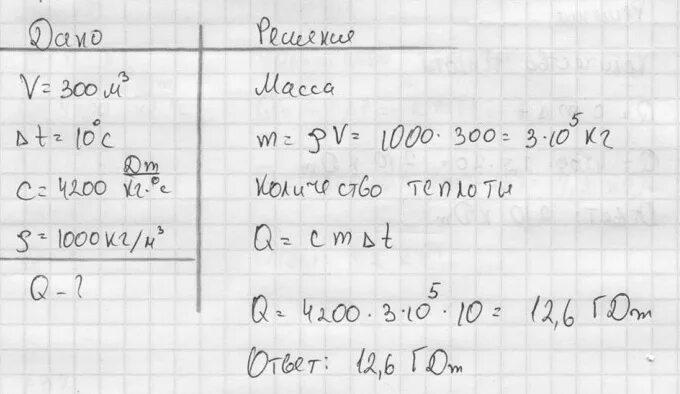 Дано
V = 300 м³
Δt = 10°C
C = 4200 Дж/кг·°C
ρ = 1000 кг/м³
Q - ?
Решение
Масса
m = ρV = 1000 · 300 = 3·10⁵ кг
Количество теплоты
Q = c m Δt
Q = 4200 · 3·10⁵ · 10 = 12,6 ГДж
Ответ: 12,6 ГДж